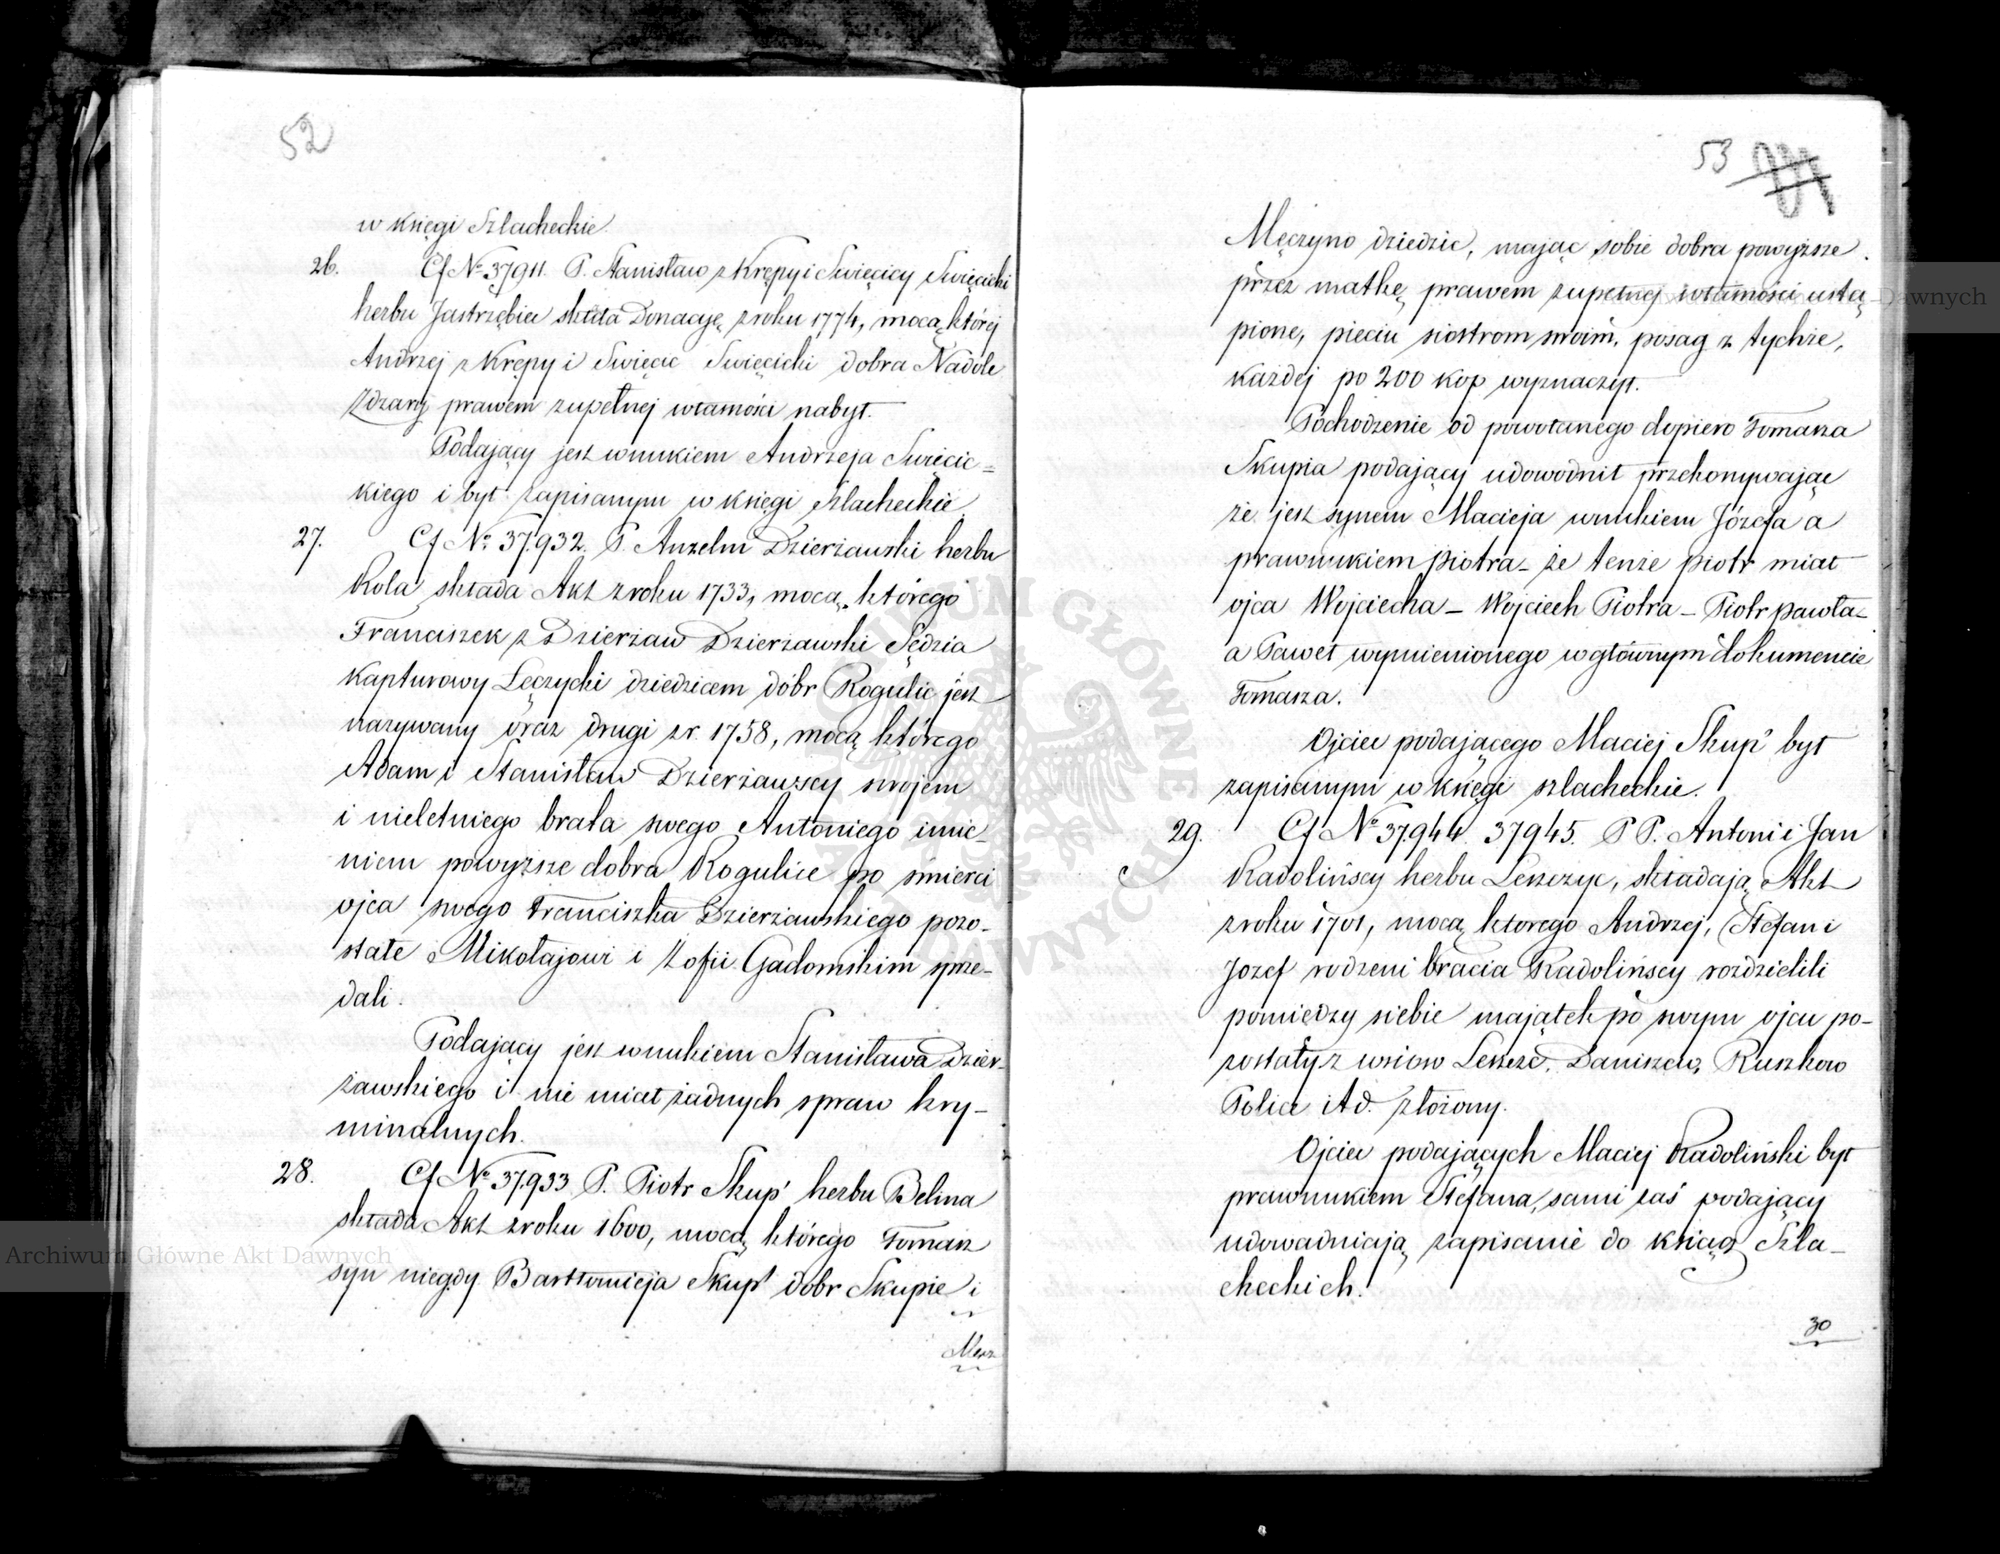 52
w księgi Szlacheckie
26. Cf № 37911. P. Stanisław z Krępy i Swięcicy Swięcicki
herbu Jastrzębiec składa Donacyę z roku 1774, mocą której
Andrzej z Krępy i Swięcic Swięcicki dobra Nadole
Zdzary prawem zupełnej własności nabył.
Podający jest wnukiem Andrzeja Swięcic=
kiego i był zapisanym w księgi szlacheckie
27. Cf № 37932. P. Anzelm Dzierżawski herbu
Rola składa Akt z roku 1733, mocą którego
Franciszek z Dzierżaw Dzierżawski Sędzia
kapturowy Łęczycki dziedzicem dóbr Rogulic jest
nazywany oraz drugi z r. 1758, mocą którego
Adam i Stanisław Dzierżawscy swojem
i nieletniego brata swego Antoniego imie-
niem powyższe dobra Rogulice po śmierci
ojca swego Franciszka Dzierżawskiego pozo-
stałe Mikołajowi i Zofii Gadomskim sprze-
dali.
Podający jest wnukiem Stanisława Dzier-
żawskiego i nie miał żadnych spraw kry-
minalnych.
28. Cf № 37933 P. Piotr Skup' herbu Belina
składa Akt z roku 1600, mocą którego Tomasz
syn niegdy Bartłomieja Skup' dobr Skupie i
53
Męczyno dziedzic, mając sobie dobra powyższe
przez matkę prawem zupełnej własności ustą
pione, pieciu siostrom swoim, posag z tychże,
każdej po 200 kop wyznaczył.
Pochodzenie od powołanego dopiero Tomasza
Skupia podający udowodnił przekonywając
że jest synem Macieja wnukiem Józefa a
prawnukiem Piotra - że tenże Piotr miał
ojca Wojciecha - Wojciech Piotra - Piotr Pawła-
a Paweł wymienionego w głównym dokumencie
Tomasza.
Ojciec podającego Maciej Skup' był
zapisanym w księgi szlacheckie.
29. Cf № 37944. 37945. P P. Antoni i Jan
Radolińscy herbu Leszczyc, składają Akt
z roku 1701, mocą ktorego Andrzej, Stefan i
Jozef rodzeni bracia Radolińscy rozdzielili
pomiędzy siebie majątek po swym ojcu po-
zostały z wsiow Leszcze, Daniszew, Ruszkow
Police i t d. złożony.
Ojciec podających Maciej Radoliński był
prawnukiem Stefana, sami zaś podający
udowadniają zapisanie do ksiąg Szla-
checkich.
30
Archiwum Główne Akt Dawnych